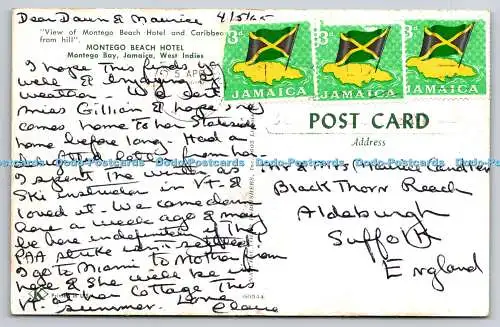 Dear Dawn & Maurice 4/5/65
"View of Montego Beach Hotel and Caribbean
from hill".
MONTEGO BEACH HOTEL
Montego Bay, Jamaica, West Indies
I hope this finds you
well & enjoying
weather. We just
miss Gillian & hope she
comes home to her Stateside
home before long. Had a
letter from her
I spent the winter as
Ski instructor in Vt. &
loved it. We came down
here a week ago & may
be here indefinitely if the
PAA strike isn't settled
I go to Miami to Mother from
here & She will be in
Vt. at her Cottage This
summer. Love
3d 3d 3d
JAMAICA JAMAICA JAMAICA
5 APR
POST CARD
Address
Mr & Mrs Maurice
Black Thorn Reach
Aldeburgh
Suffolk
England
Dodo-Postcards Dodo-Postcards Dodo-Postcards Dodo-Postcards